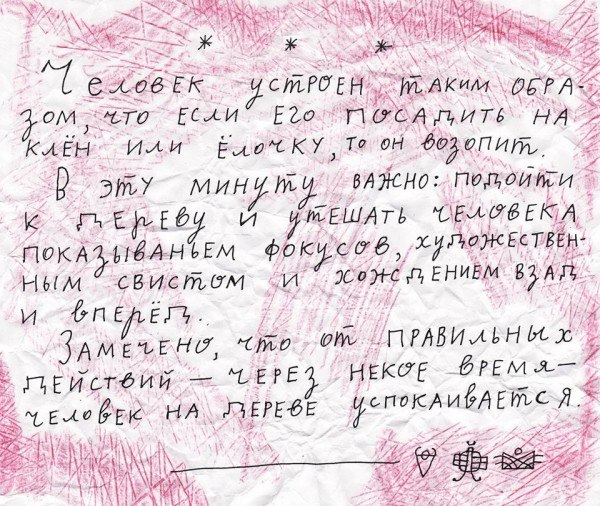 * * *
Человек устроен таким обра-
зом, что если его посадить на
клён или ёлочку, то он возопит.
В эту минуту важно: подойти
к дереву и утешать человека
показываньем фокусов, художествен-
ным свистом и хождением взад
и вперёд.
Замечено, что от правильных
действий — через некое время —
человек на дереве успокаивается.